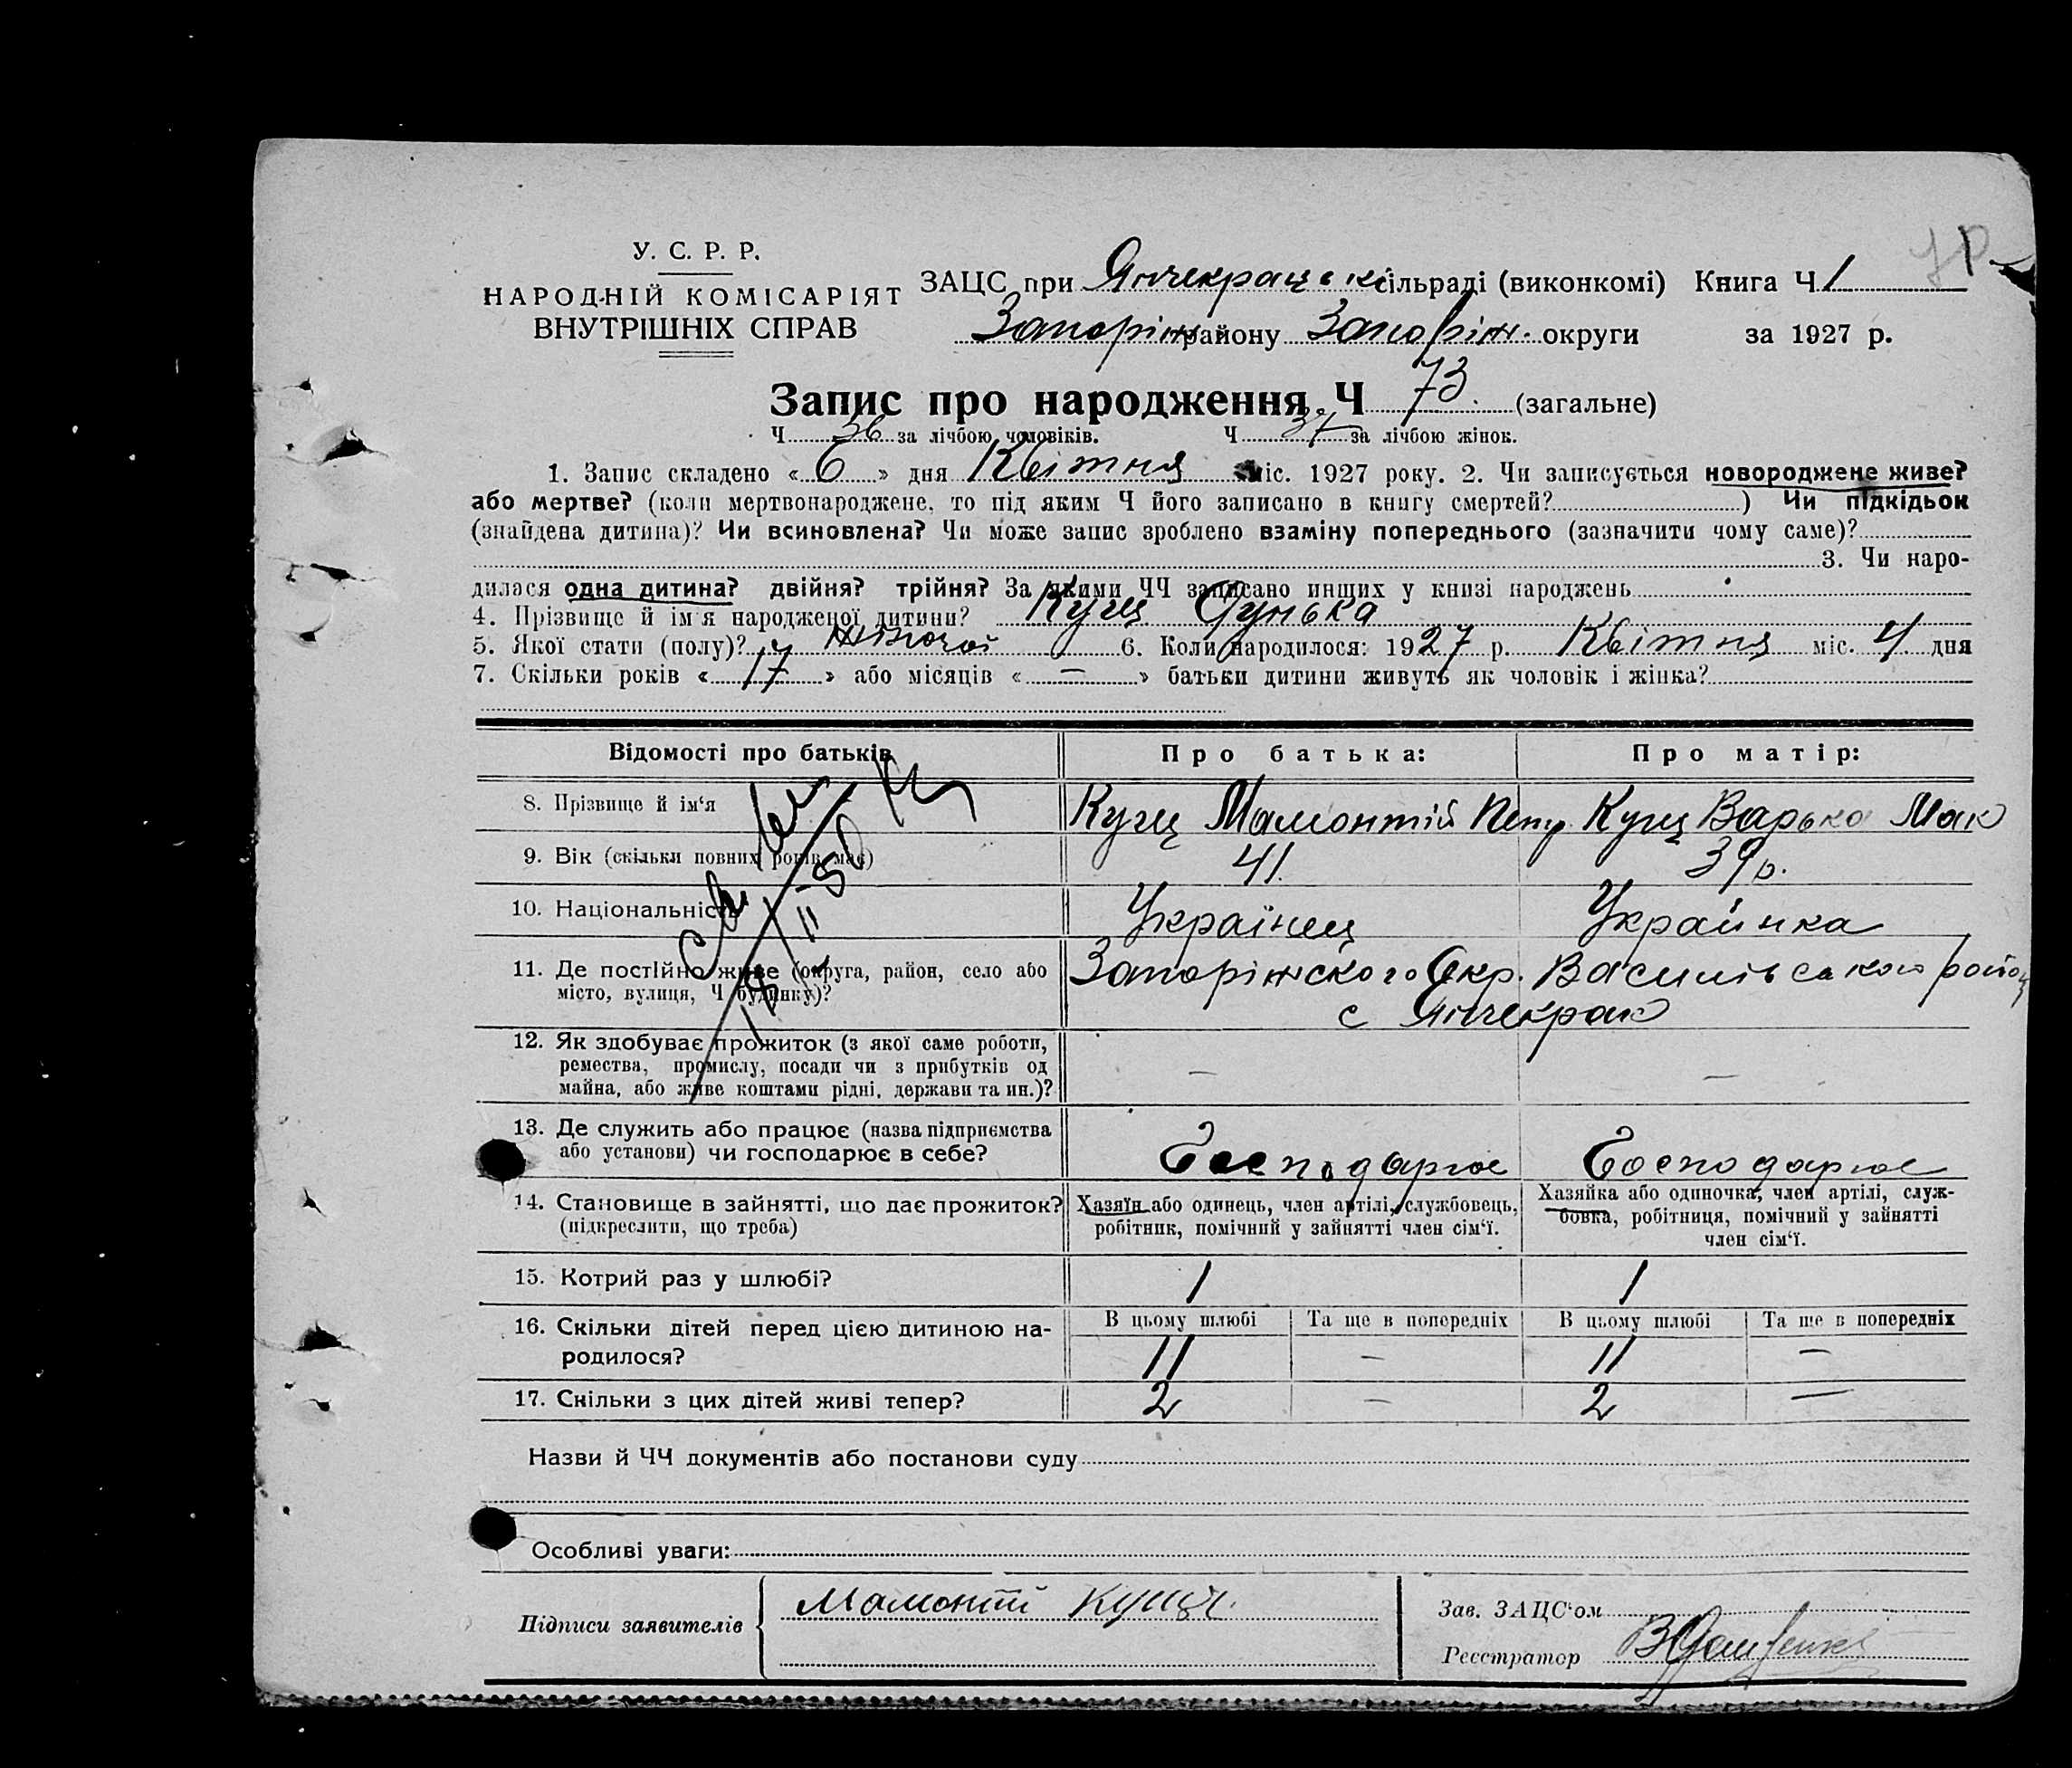 У. С. Р. Р.
НАРОДНІЙ КОМІСАРІЯТ
ВНУТРІШНІХ СПРАВ
ЗАЦС при Янчекрацькій сільраді (виконкомі) Книга Ч 1
Запоріж. району Запоріж. округи за 1927 р.
Запис про народження Ч 73. (загальне)
Ч 36 за лічбою чоловіків. Ч 37 за лічбою жінок.
1. Запис складено « 6 » дня Квітня міс. 1927 року. 2. Чи записується новороджене живе?
або мертве? (коли мертвонароджене, то під яким Ч його записано в книгу смертей? ) Чи підкідьок
(знайдена дитина)? Чи всиновлена? Чи може запис зроблено взаміну попереднього (зазначити чому саме)?
3. Чи наро-
дилася одна дитина? двійня? трійня? За якими ЧЧ записано инщих у книзі народжень
4. Прізвище й ім'я народженої дитини? Кущ Дунька
5. Якої стати (полу)? жіночой 6. Коли народилося: 1927 р. Квітня міс. 4 дня
7. Скільки років « 17 » або місяців « — » батьки дитини живуть як чоловік і жінка?
Відомості про батьків Про батька: Про матір:
8. Прізвище й ім'я Кущ Мамонтій Кущ Варька Мак
9. Вік (скільки повних років має) 41. 39 р.
10. Національність Українец Украйнка
11. Де постійно живе (округа, район, село або Запоріжского Окр. Василівського району
місто, вулиця, Ч будинку)? с Янчекрак
12. Як здобуває прожиток (з якої саме роботи,
ремества, промислу, посади чи з прибутків од — —
майна, або живе коштами рідні, держави та ин.)?
13. Де служить або працює (назва підприємства
або установи) чи господарює в себе? Господарює Господарює
14. Становище в зайнятті, що дає прожиток? Хазяїн або одинець, член артілі, службовець, Хазяйка або одиночка, член артілі, служ-
(підкреслити, що треба) робітник, помічний у зайнятті член сім'ї. бовка, робітниця, помічний у зайнятті
член сім'ї.
15. Котрий раз у шлюбі? 1 1
16. Скільки дітей перед цією дитиною на- В цьому шлюбі Та ще в попередніх В цьому шлюбі Та ще в попередніх
родилося? 11 — 11 —
17. Скільки з цих дітей живі тепер? 2 — 2 —
Назви й ЧЧ документів або постанови суду
Особливі уваги:
Підписи заявителів Мамонтій Кущ
Зав. ЗАЦС'ом
Реєстратор